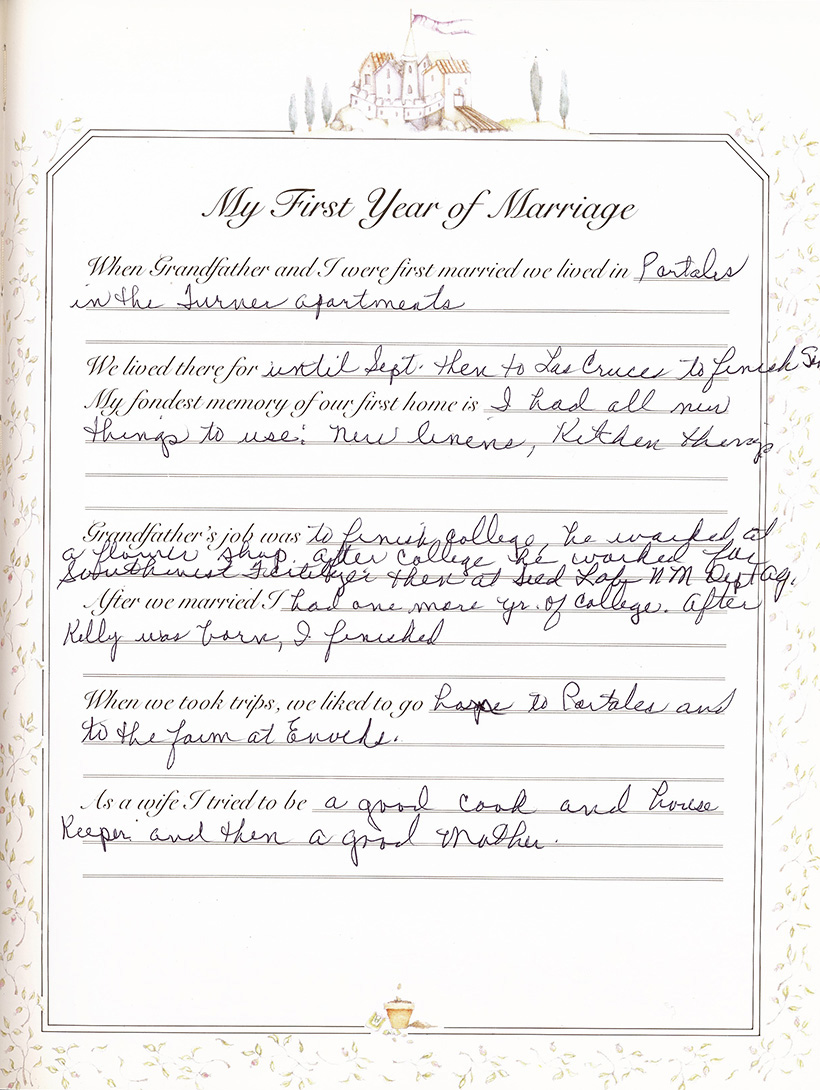 My First Year of Marriage
When Grandfather and I were first married we lived in Portales
in the Turner apartments
We lived there for until Sept. then to Las Cruces to finish
My fondest memory of our first home is I had all new
things to use: New linens, Kitchen things
Grandfather's job was to finish college, he worked at
a flower shop. after college he worked for
Southwest Fertilizer then at Seed Lab NM Dept Ag.
After we married I had one more yr. of college. After
Kelly was born, I finished
When we took trips, we liked to go home to Portales and
to the farm at Enochs.
As a wife I tried to be a good cook and house
Keeper and then a good Mother.